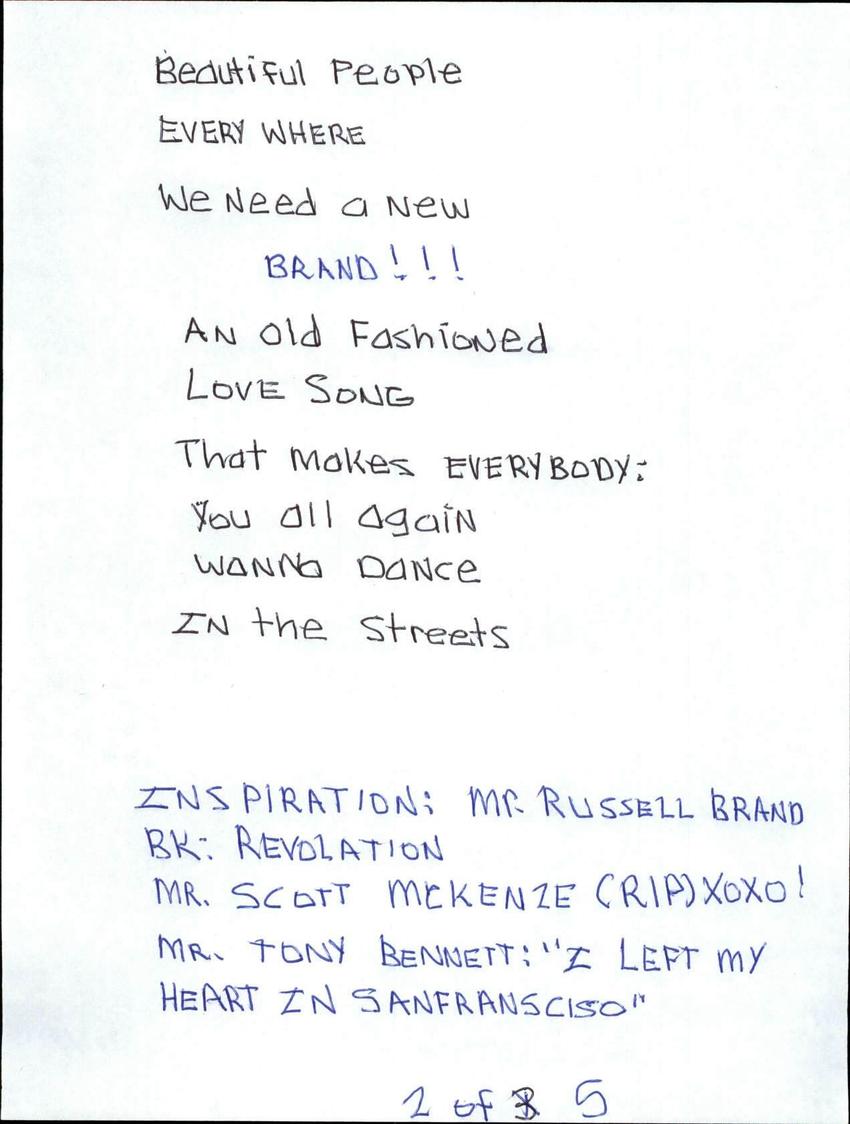 Beautiful People
EVERY WHERE
We Need a New
BRAND!!!
AN Old Fashioned
LOVE SONG
That Makes EVERYBODY:
You all Again
WANNA DANCE
IN the Streets
INSPIRATION: MR. RUSSELL BRAND
BK: REVOLATION
MR. SCOTT MCKENZIE (RIP) XOXO!
MR. TONY BENNETT: "I LEFT MY
HEART IN SANFRANSCISO"
2 of 5